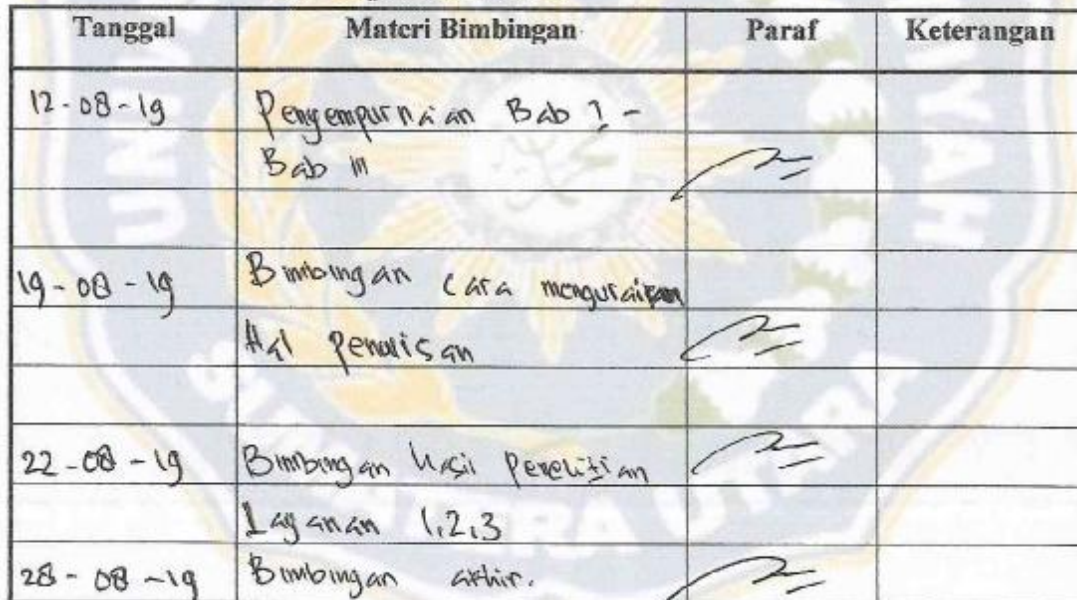 Tanggal Materi Bimbingan Paraf Keterangan
12-08-19 Pengempurnaan Bab I -
Bab III
19-08-19 Bimbingan cara menguraikan
Hal penulisan
22-08-19 Bimbingan Hasil Penelitian
Layanan 1,2,3
28-08-19 Bimbingan akhir.
SUMATERA UTARA